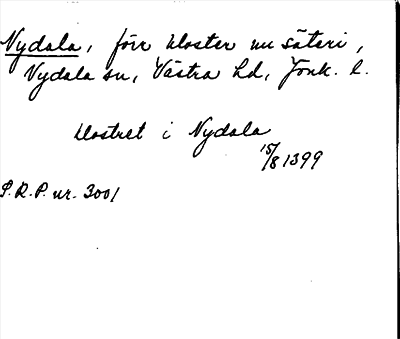 Nydala, förr kloster nu säteri,
Nydala sn, Västra hd, Jönk. l.
klostret i Nydala
15/8 1399
S.R.P. nr. 3001